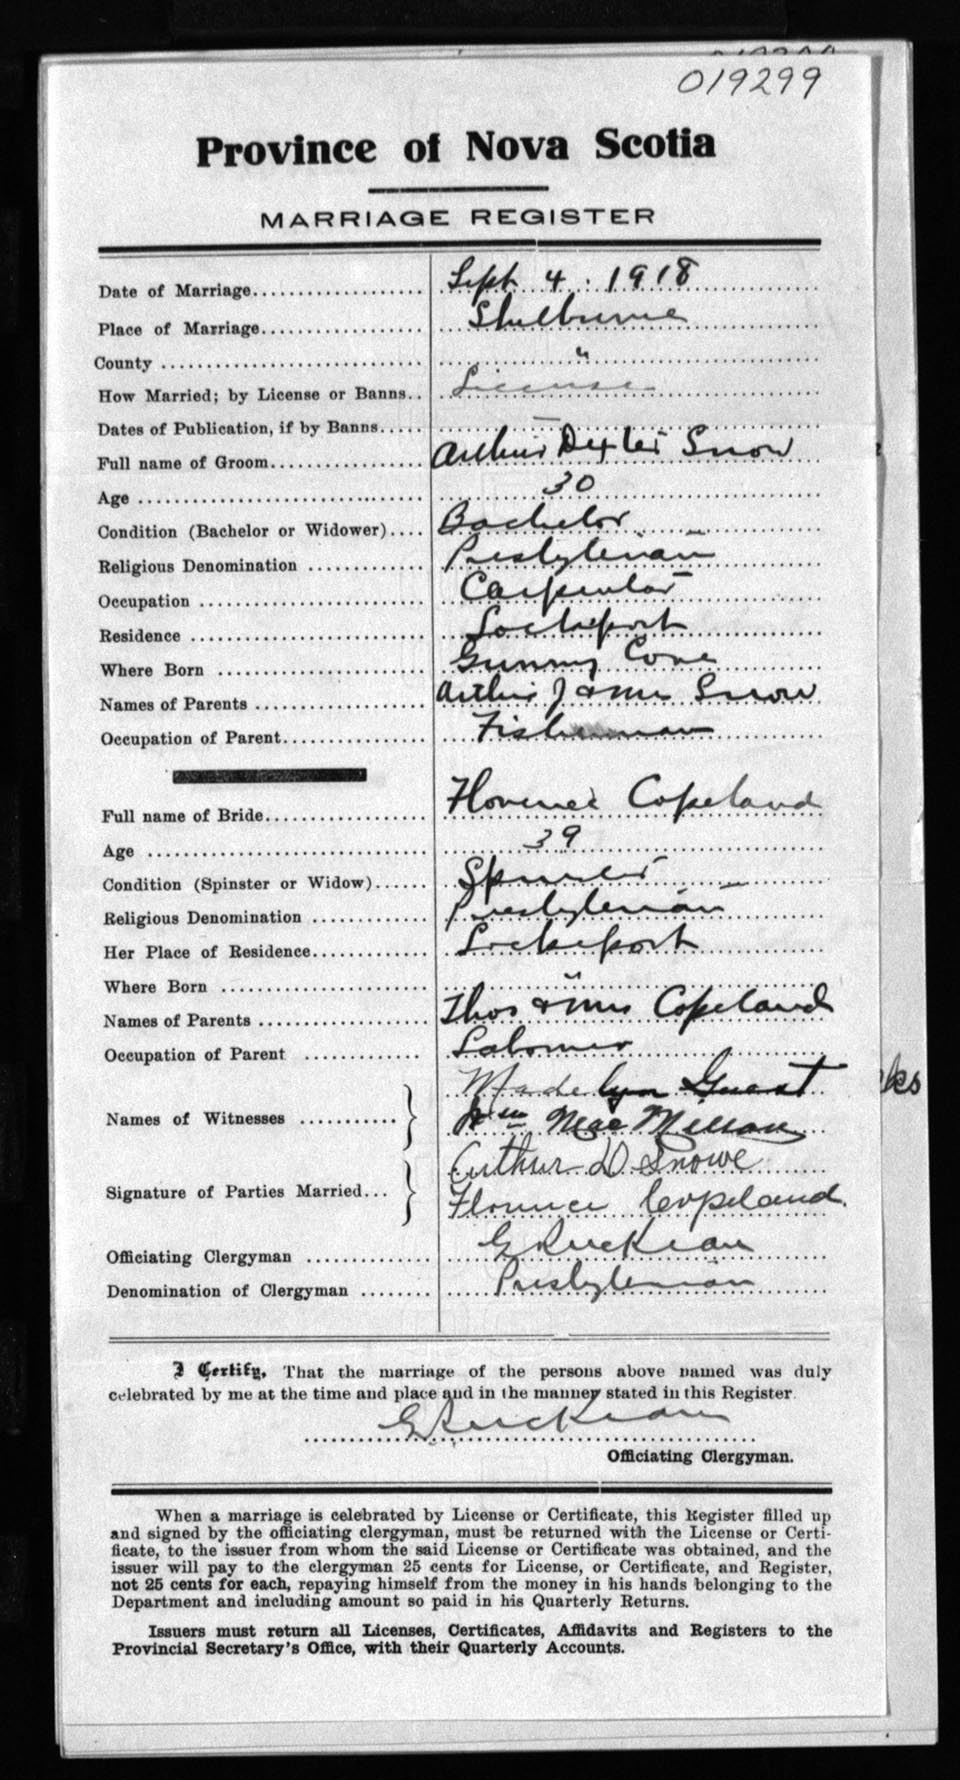 019299
Province of Nova Scotia
MARRIAGE REGISTER
Date of Marriage.................... Sept 4. 1918
Place of Marriage................... Shelburne
County ............................ "
How Married; by License or Banns.. License
Dates of Publication, if by Banns..... —
Full name of Groom.................. Arthur Dexter Snow
Age ............................... 30
Condition (Bachelor or Widower).... Bachelor
Religious Denomination ............ Presbyterian
Occupation ........................ Carpenter
Residence ......................... Lockeport
Where Born ........................ Gunning Cove
Names of Parents .................. Arthur J & Mrs Snow
Occupation of Parent................ Fisherman
Full name of Bride.................. Florence Copeland
Age ............................... 39
Condition (Spinster or Widow)...... Spinster
Religious Denomination ............ Presbyterian
Her Place of Residence............. Lockeport
Where Born ........................ "
Names of Parents .................. Thos & Mrs Copeland
Occupation of Parent ............. Labourer
Madelyn Guest
Names of Witnesses ...........
Wm MacMillan
Arthur D Snowe
Signature of Parties Married...
Florence Copeland.
Officiating Clergyman .............
Denomination of Clergyman ........ Presbyterian
I Certify, That the marriage of the persons above named was duly
celebrated by me at the time and place and in the manner stated in this Register.
Officiating Clergyman.
When a marriage is celebrated by License or Certificate, this Register filled up
and signed by the officiating clergyman, must be returned with the License or Certi-
ficate, to the issuer from whom the said License or Certificate was obtained, and the
issuer will pay to the clergyman 25 cents for License, or Certificate, and Register,
not 25 cents for each, repaying himself from the money in his hands belonging to the
Department and including amount so paid in his Quarterly Returns.
Issuers must return all Licenses, Certificates, Affidavits and Registers to the
Provincial Secretary's Office, with their Quarterly Accounts.